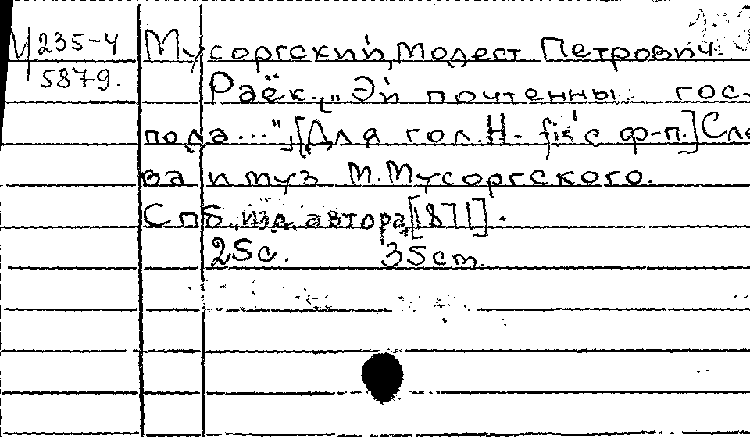 М 235-4
5879.
Мусоргский, Модест Петрович.
Раёк. „Эй почтенны гос-
пода..." [Для гол. H- fis' с ф-п.] Сло
ва и муз М. Мусоргского.
Спб, изд. автора, [1871].
25с. 35ст.